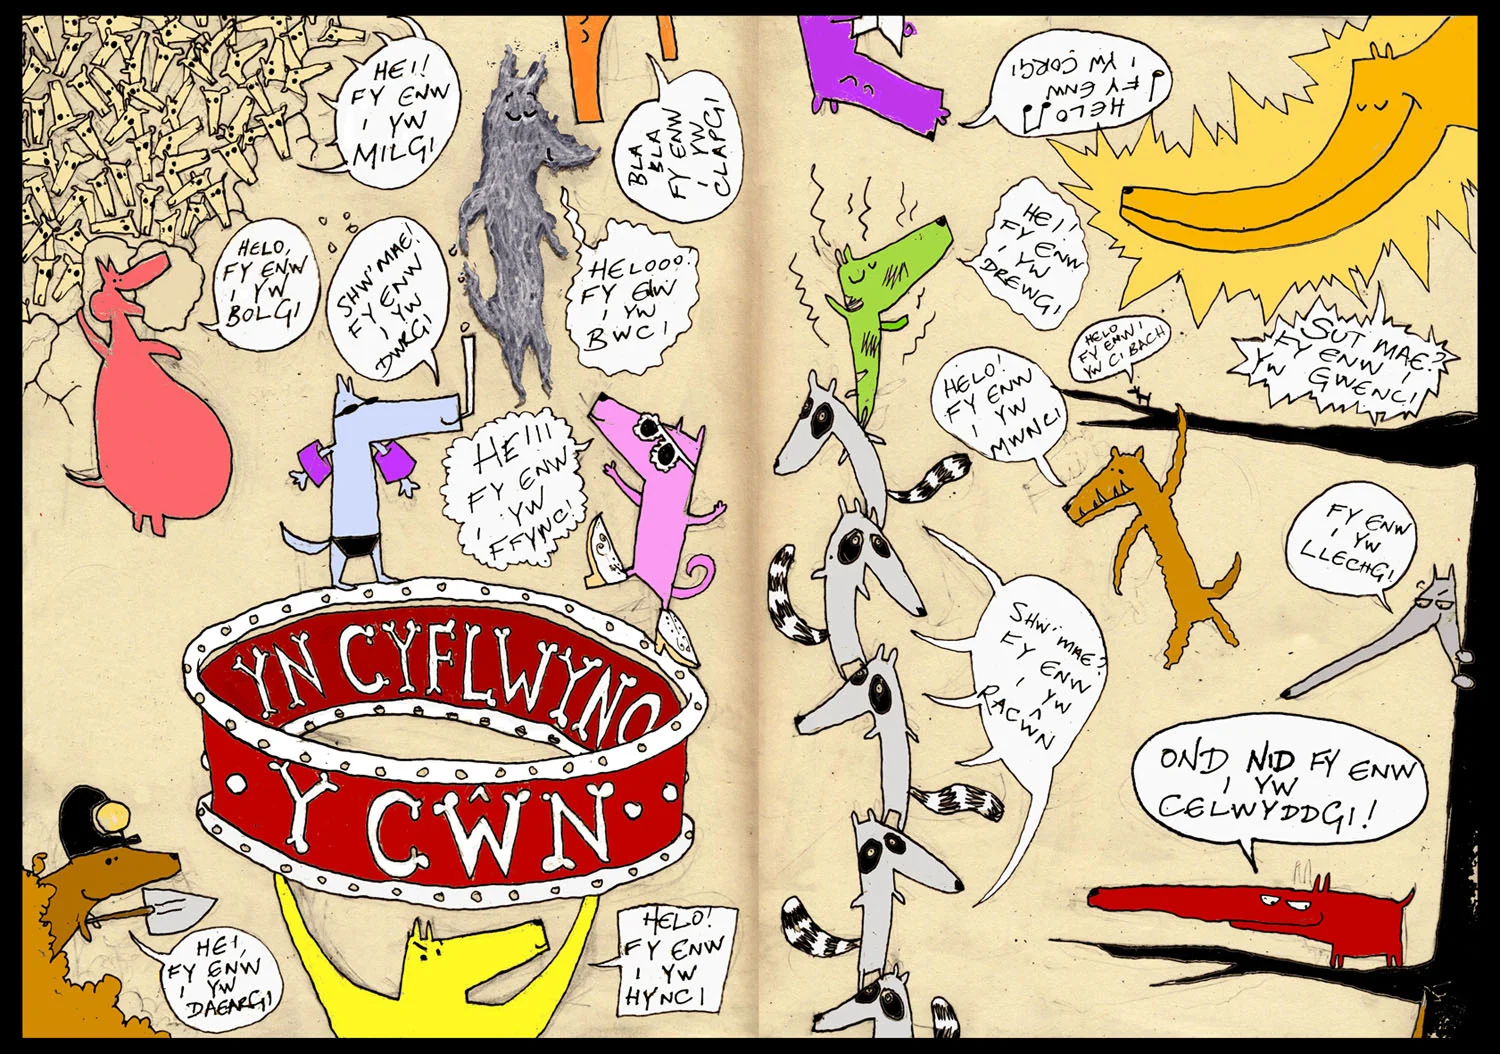 HEI!
FY ENW
I YW
MILGI
BLA
BLA
FY ENW
I YW
CLAPGI
HELO,
FY ENW
I YW
BOLGI
SHW' MAE!
FY ENW
I YW
DWRGI
HELOOO!
FY ENW
I YW
BWCI
HEIII
FY ENW
I YW
FFYNCI!
YN CYFLWYNO
Y CŴN
HEI,
FY ENW
I YW
DAEARGI
HELO!
FY ENW
I YW
HYNCI
HELO
FY ENW
I YW CORGI
HEI!
FY ENW
I YW
DREWGI
SUT MAE?
FY ENW I
YW GWENCI
HELO
FY ENW I
YW CI BACH
HELO!
FY ENW
I YW
MWNCI
FY ENW
I YW
LLECHGI
SHW' MAE?
FY ENW
I YW
RACŴN
OND NID FY ENW
I YW
CELWYDDGI!